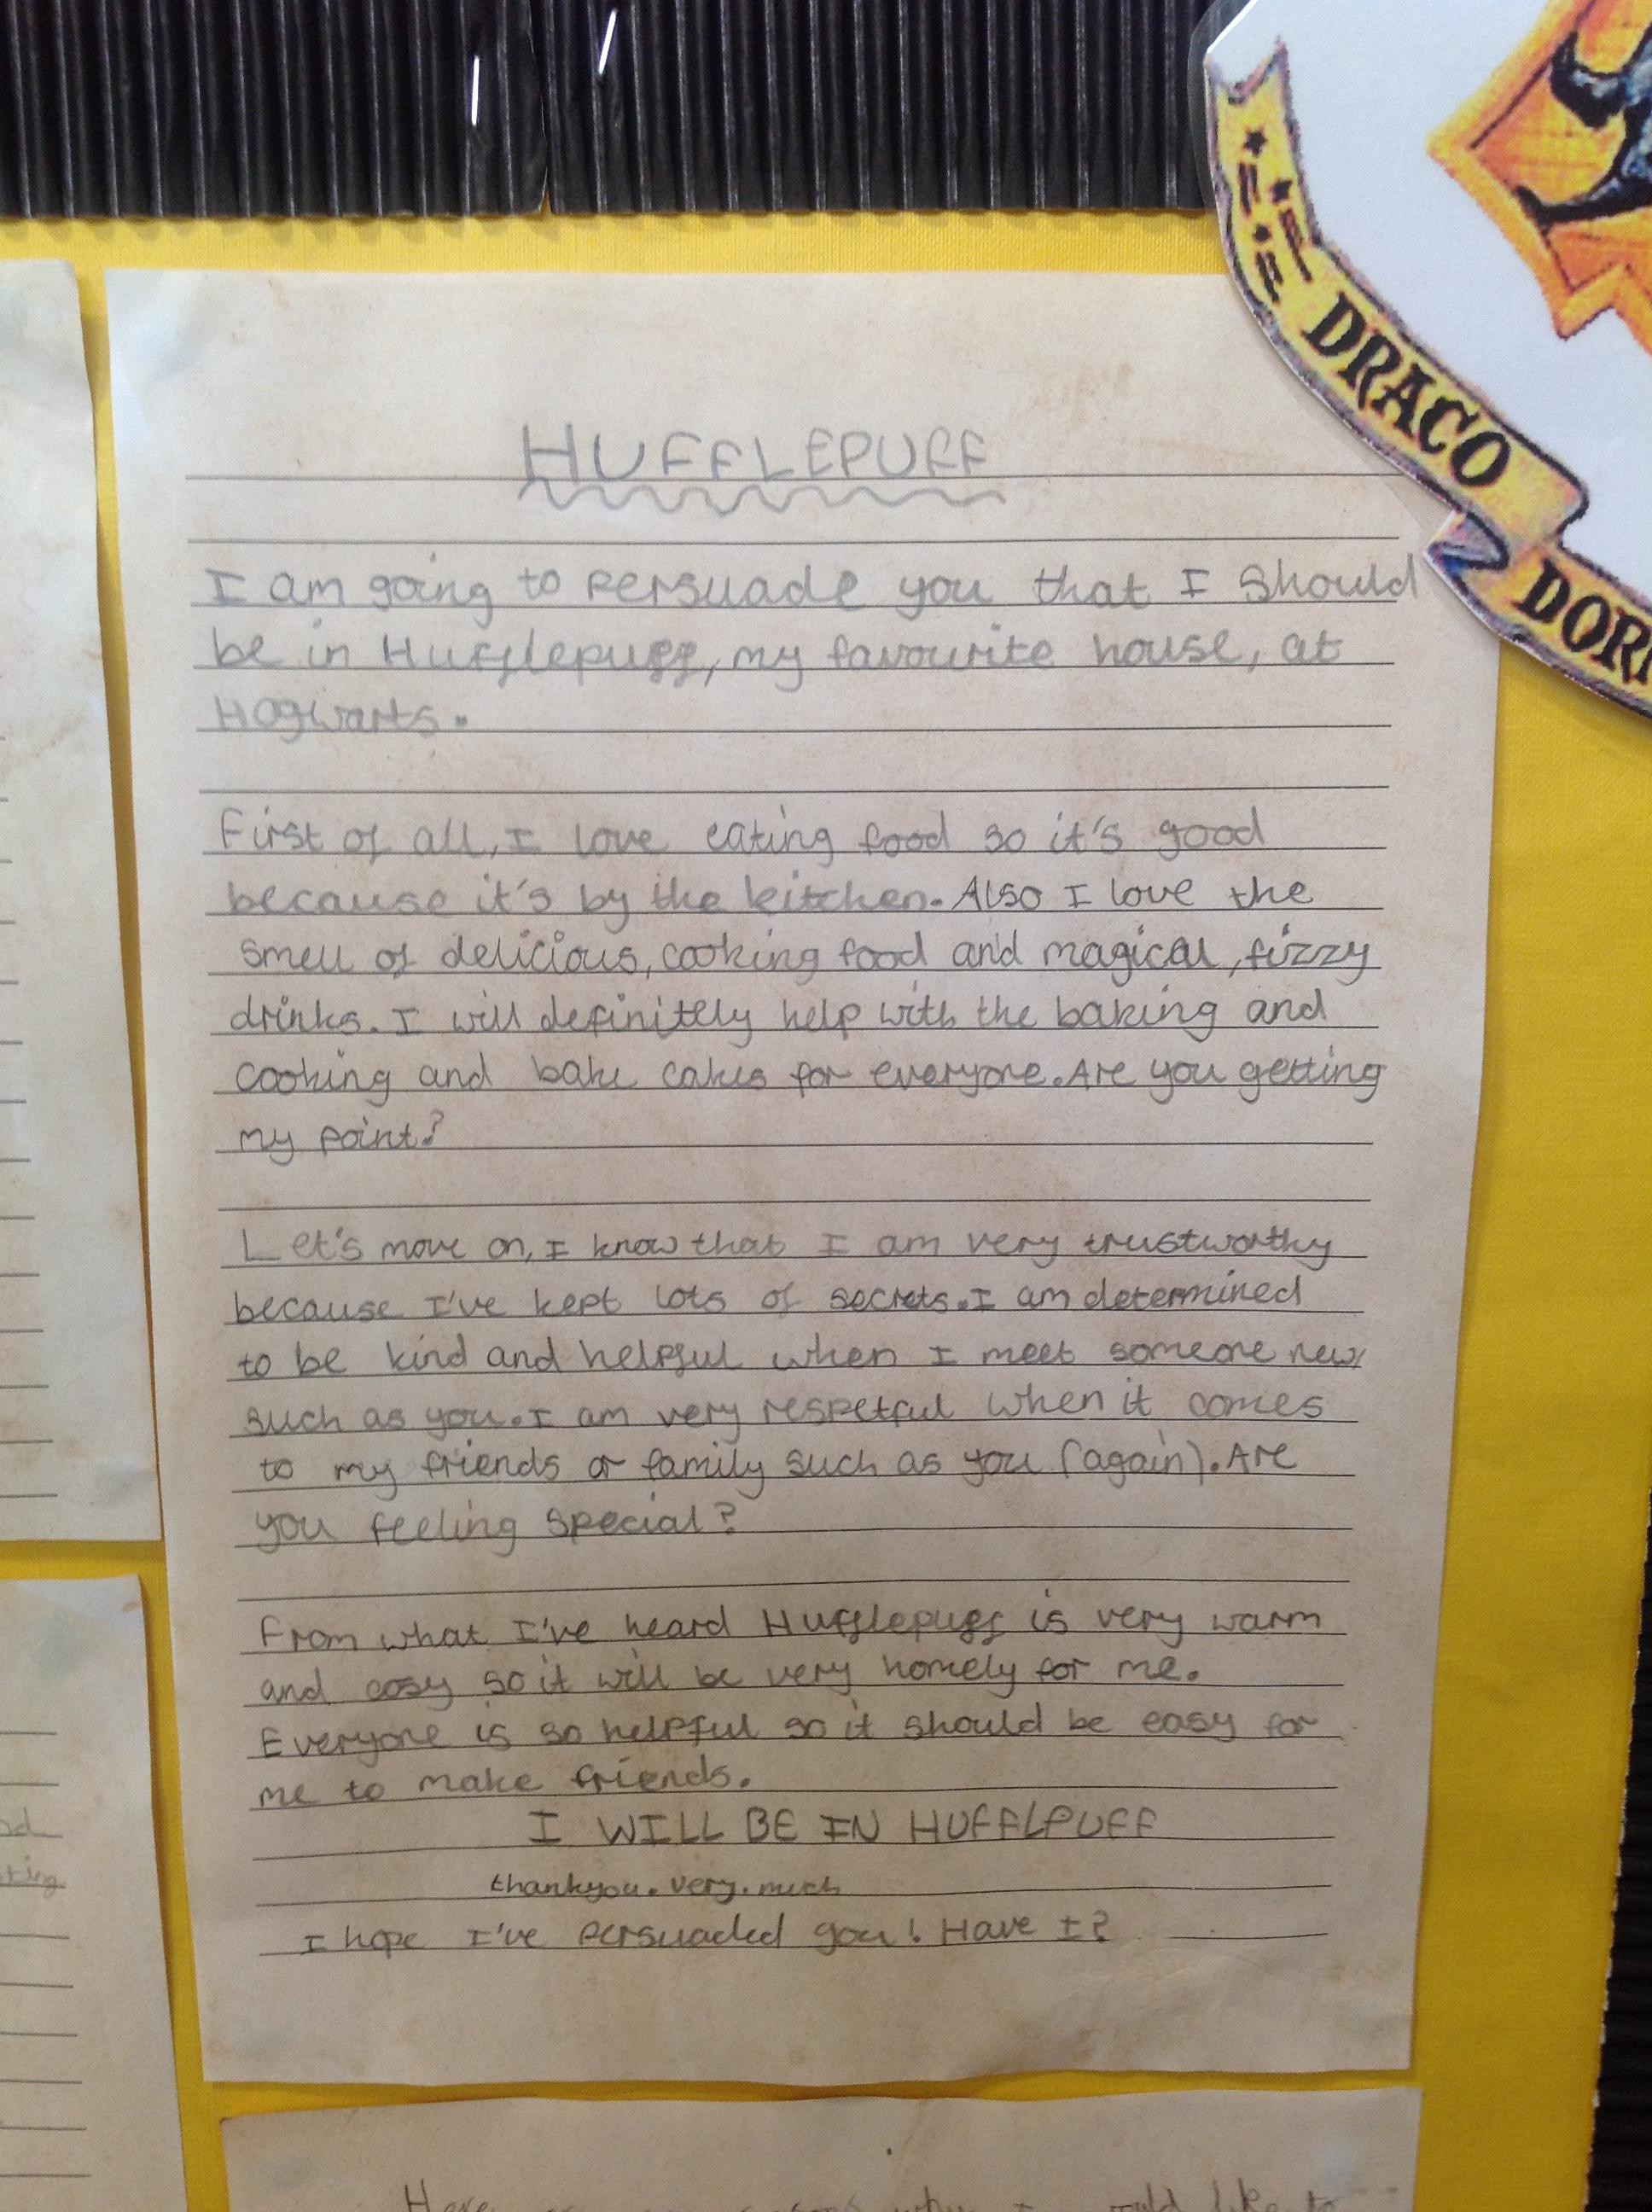 HUFFLEPUFF
I am going to persuade you that I should
be in Hufflepuff, my favourite house, at
Hogwarts.
First of all, I love eating food so it's good
because it's by the kitchen. Also I love the
smell of delicious, cooking food and magical, fizzy
drinks. I will definitely help with the baking and
cooking and bake cakes for everyone. Are you getting
my point?
Let's move on, I know that I am very trustworthy
because I've kept lots of secrets. I am determined
to be kind and helpful when I meet someone new,
such as you. I am very respetful when it comes
to my friends or family such as you (again). Are
you feeling special?
From what I've heard Hufflepuff is very warm
and cosy so it will be very homely for me.
Everyone is so helpful so it should be easy for
me to make friends.
I WILL BE IN HUFFLPUFF
thankyou. very. much
I hope I've persuaded you! Have I?
DRACO
DOR